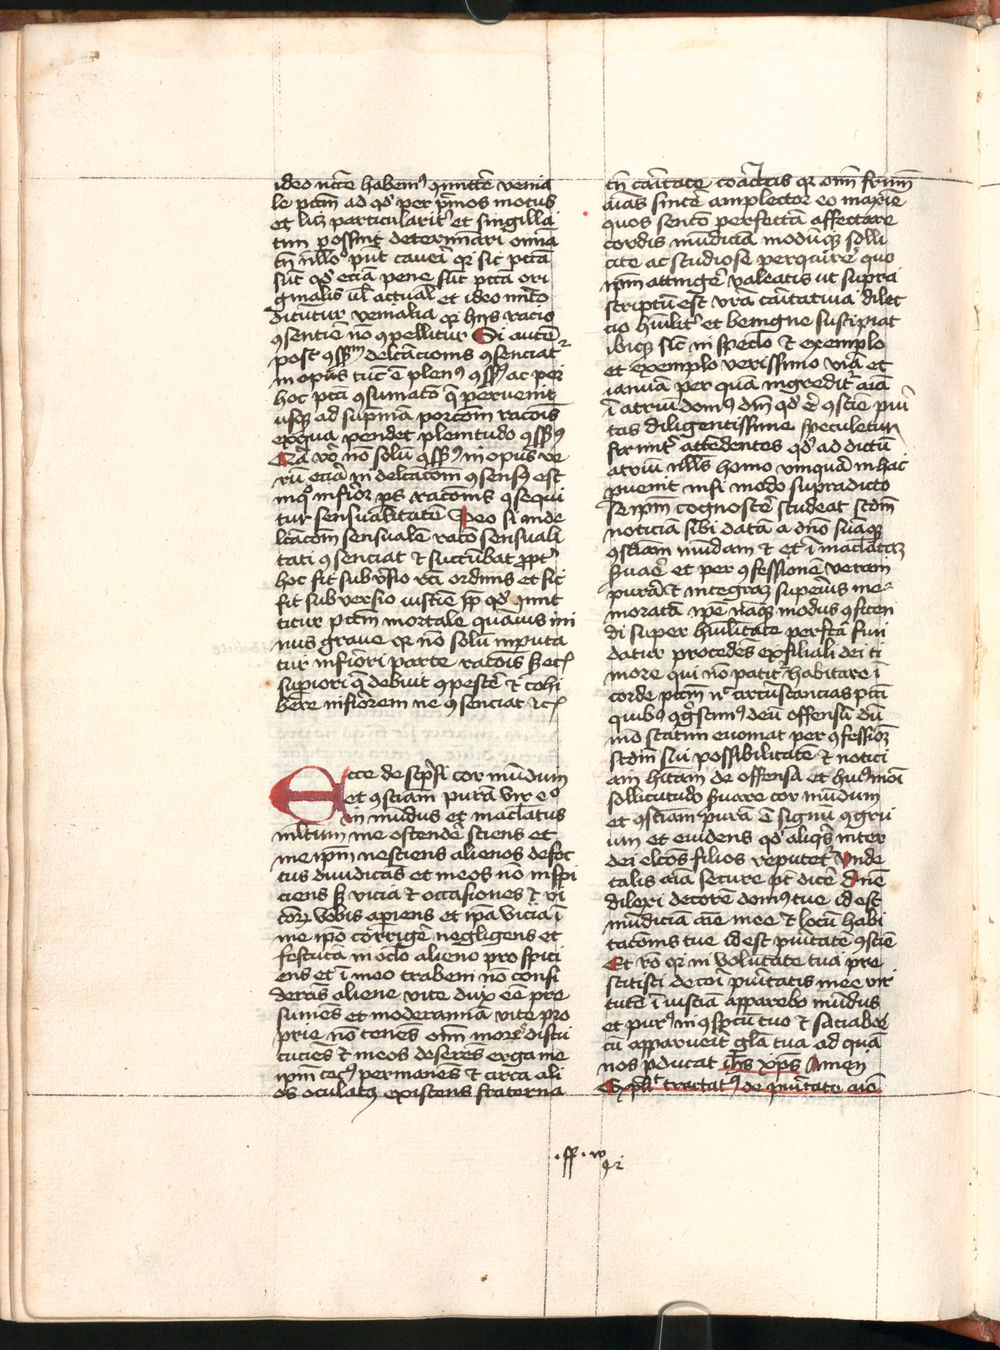 ideo nccē habemꝰ qmittē venia
le pctm̄ ad qd̓ per pͥmos motus
et lꝫ particularit̓ et singilla
tim possint determīari om̄ia
tn̄ nllo pn̄t caueri qꝛ sic pctā
sūt qd̓ eciā pene sūt pctā ori
ginalis ul̓ actual̓ et ideo m̄ito
dicūtur venialia qꝛ hijs racio
ꝯsentiēs nō ꝯpellitur Si autē
post ꝯsēsū delcācionis ꝯsenciat
in opus tūc ē plenꝰ ꝯsēsꝰ ac per
hoc pctm̄ ꝯsumatū qꝛ peruenit
usqꝫ ad suprmā porcōm racōis
ex qua pendet plenitudo ꝯsēsꝰ
Ca vo̓ nō solū ꝯsēsꝰ in opus ve
rū eciā in delcācōm ꝯsensꝰ est
inqͦ inferior ps racōnis ꝯsequi
tur sensualitatē Ideo si in de
lcācōm sensualē rato sensuali
tati ꝯsenciat et sucrūbat ꝓpt̓
hoc fit subv̓sio rcī ordinis et sic
fit subversio iusticie ꝓp qd̓ īmit
titur pctm̄ mortale quāuis mi
nus graue qꝛ nō solū inputa
tur inferiori parte racōis sꝫ etc̄
superiori qͥ debuit ꝯpescē et cohi
bēre inferiorem ne ꝯsenciat etc̄
Ecce descͥpsi cor mūdum
et ꝯsciam purā vir eo
in mūdus et maclātus
m̄ltum me ostendē sciens et
me ipm̄ nesciens alienos defec
tus diiudicās et meos nō inspi
ciens sꝫ vicia et occasiones et vi
ciorꝫ vobis apiens et ipa vicia ī
me ipō corrigē negligens et
festuca in oc̄lo alieno prospici
ens et ī meo trabem nō consi
derās aliene vite dux eē pre
sumēs et moderamīa vite pro
prie nō tenēs om̄ mores discu
ciēs et meos deserēs erga me
ipm̄ cecꝰ permanēs et circa ali
os oculatꝰ existens fraterna
tn̄ caritate coactus qꝛ om̄ frīm
aīas sincē amplector eo maxīe
quos sentio perfectā affectare
cordis mūdiciā modūqꝫ solli
cite ac studiose perquirē quo
ipm̄ attingē valeatis ut supra
scriptū est vrā caritatīa dilec
cio hūilit̓ et benigne suscipiat
ibiqꝫ sic in speclō et exemplo
et exemplo verissimo viā et
ianuā per quā ingredit̓ aīa
ī atriū domꝰ dn̄i qd̓ ē ꝯscīe puri
tas diligentissime speculetur
firmit̓ attēdentes qd̓ ad dictū
atriū nlls̄ homo vmquā in hac
puenit nisi modo supradicto
se ipm̄ cognoscē studeat scdm̄
noticiā sibi datā a dn̄o suāqꝫ
ꝯsciam mūdam et et ī maclātā
s̓uare et per ꝯfessionē veram
purā et integrā superius me
moratā ipē nāqꝫ modus ꝯfiten
di super hūilitate perfctā fun
datur procedēs ex filiali dei ti
more qui nō patit̓ habitare ī
corde pctm̄ nͨ circūstancias pctī
quibꝰ ꝯgͦscimꝰ deū offensū dū
mo statim euomat per ꝯfessiōꝫ
scdm̄ sui possibilitatē et notici
am hītam de offensa et huiꝰmōi
sollicitudo s̓uare cor mūdum
et ꝯsciam purā ē signū ꝯgru
um et euidens qd̓ aliqͥs inter
dei elctōs filios reputet̓ Vnde
talis aīa secure pt̄ dicē Dn̄e
dilexi decorē domꝰ tue id est
mūdiciā aīe mee et locū habi
tacōnis tue id est puritatē ꝯscīe
Et ro̓ qꝛ in volūtate tua pre
stitisti decori puritatis mee vir
tutē ī iusticia apparebo mūdus
et purꝰ in ꝯspctū tuo et saciabor
cū apparuerit gl̄a tua ad quā
nos pducat ih̄s xp̄s Amen
Expl̓t tractatꝰ de puritate aīe